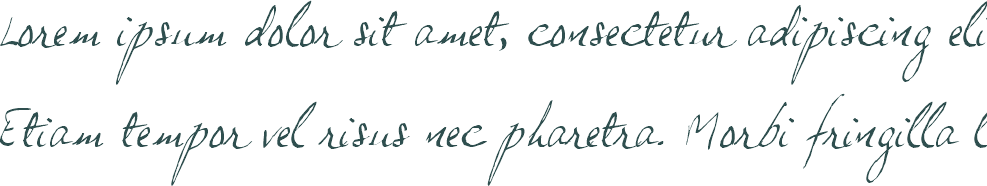 Lorem ipsum dolor sit amet, consectetur adipiscing eli
Etiam tempor vel risus nec pharetra. Morbi fringilla l